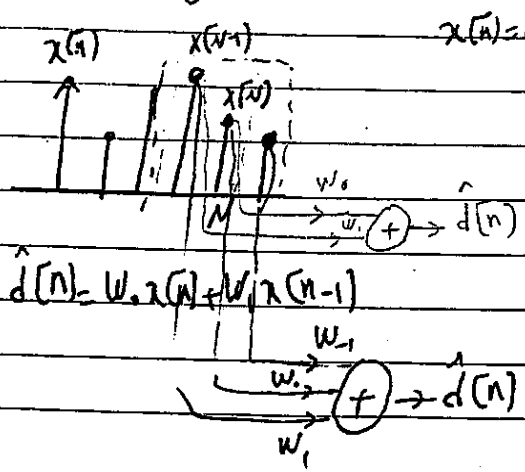 x[n] =
x[n]
x[N-1]
x[N]
W₀
N
W₁
+
→ d̂[n]
d̂[n] = W₀ x[n] + W₁ x[n-1]
W₋₁
W₀
+
→ d̂[n]
W₁